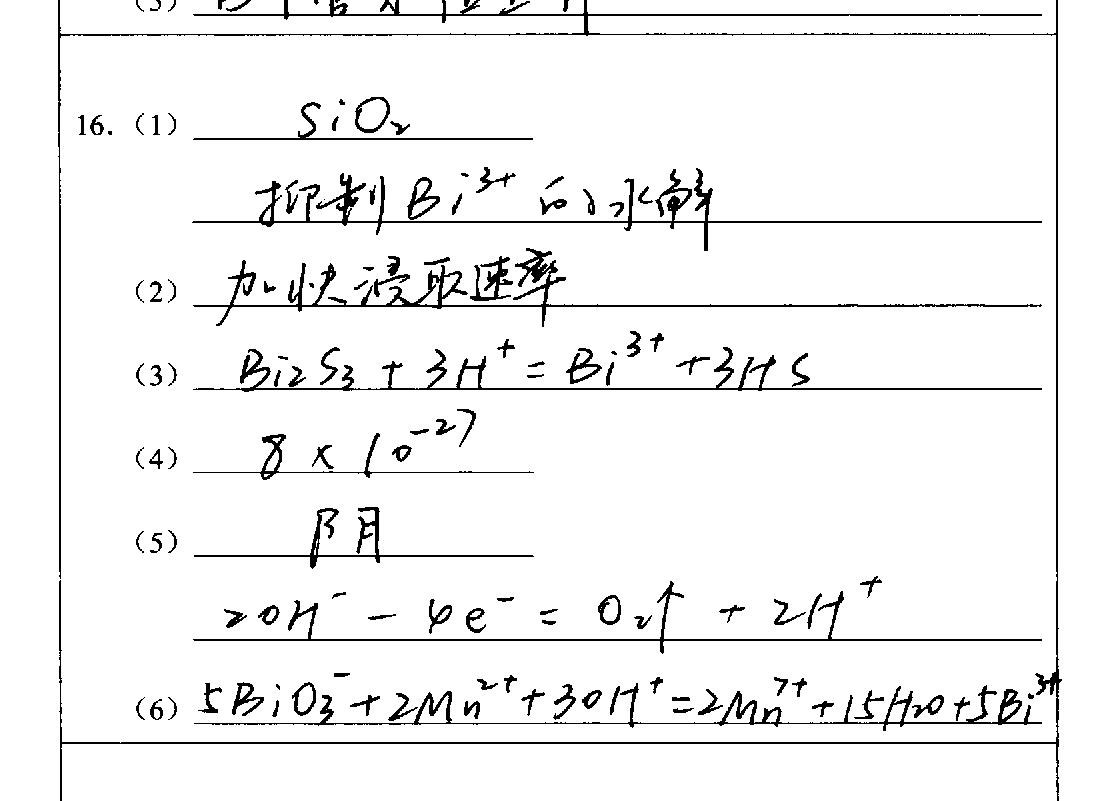 (5)
16.（1） SiO₂
抑制Bi³⁺的水解
（2） 加快浸取速率
（3） Bi₂S₃ + 3H⁺ = Bi³⁺ + 3HS
（4） 8×10⁻²⁷
（5） 阴
2OH⁻ - 4e⁻ = O₂↑ + 2H⁺
（6） 5BiO₃⁻+2Mn²⁺+30H⁺=2Mn⁷⁺+15H₂O+5Bi³⁺